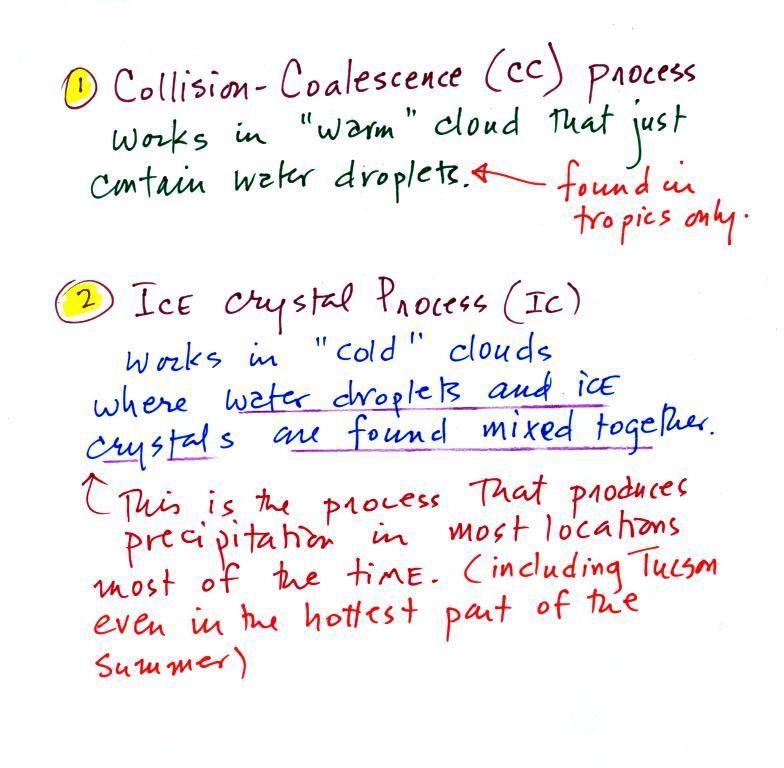 1 Collision-Coalescence (CC) process
works in "warm" cloud that just
contain water droplets. ← found in
tropics only.
2 Ice crystal Process (IC)
works in "cold" clouds
where water droplets and ice
crystals are found mixed together.
↑ This is the process that produces
precipitation in most locations
most of the time. (including Tucson
even in the hottest part of the
summer)